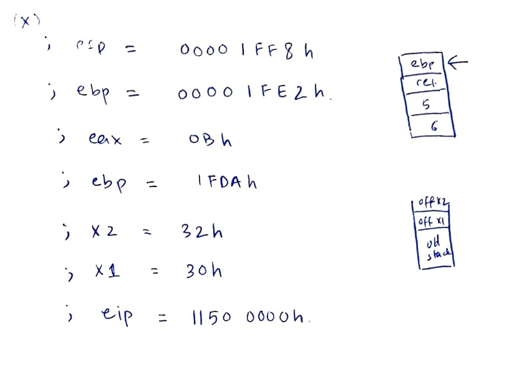 (x)
; esp = 0000 1FF8h
; ebp = 0000 1FE2h.
; eax = 0Bh
; ebp = 1FDAh
; X2 = 32h
; X1 = 30h
; eip = 1150 0000h.
ebp ←
ret
5
6
off X2
off X1
old
stack